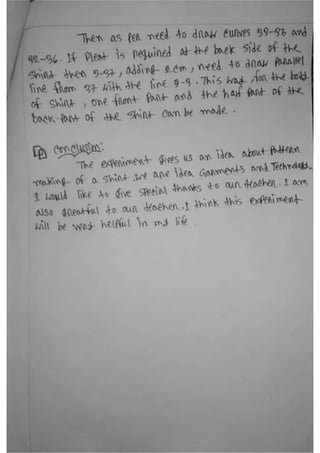 Then as per need to draw curves 33-35 and
32-36. If Pleat is required at the back side of the
shirt then 9-37, adding 2cm, need to draw parallel
line from 37 with the line 9-3. This way, for the body
of shirt, one front part and the half part of the
back part of the shirt can be made.
Conclusion:
The experiment gives us an idea about Pattern
making of a shirt. we are idea Garments and Technology.
I would like to give special thanks to our teacher. I am
also greatful to our teacher. I think this experiment
will be very helpful in my life.